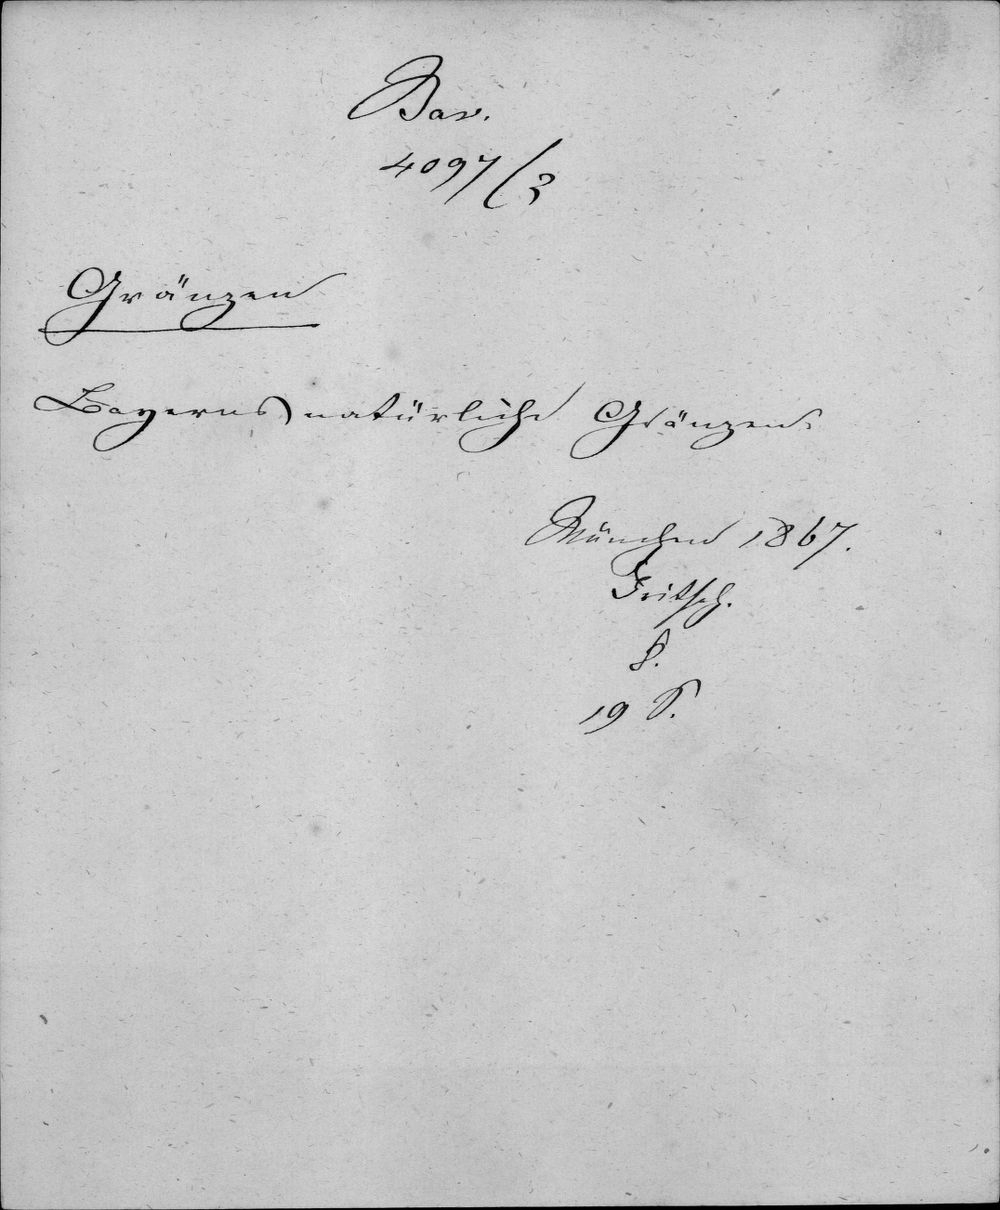 Bav.
4097/3
Gränzen
Bayerns natürliche Gränzen.
München 1867.
Fritsch.
8.
19 S.